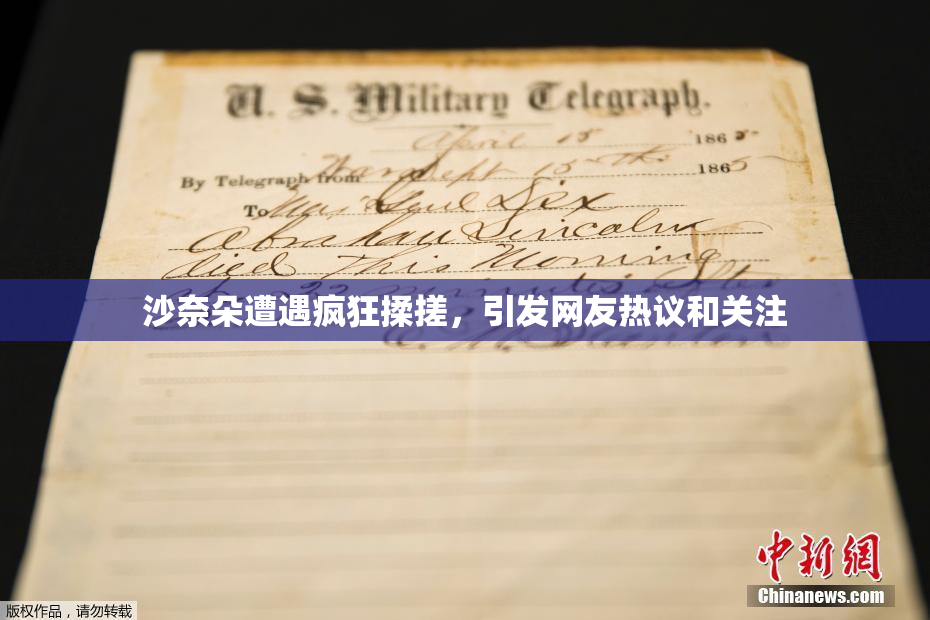 U. S. Military Telegraph.
April 15 1865
By Telegraph from War Dept 15th 1865
To Maj Genl Dix
Abraham Lincoln
died This Morning
沙奈朵遭遇疯狂揉搓，引发网友热议和关注
中新網
Chinanews.com
版权作品，请勿转载